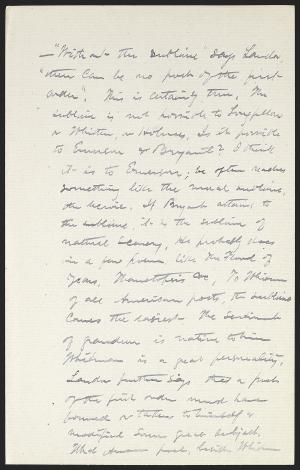 — "Without the sublime" says Landor,
"there can be no poet of the first
order". This is certainly true. The
sublime is not possible to Longfellow
or Whittier, or Holmes. Is it possible
to Emerson or Bryant? I think
it is to Emerson; he often reaches
something like the moral sublime,
the heroic. If Bryant attains to
the sublime, it is the sublime of
natural scenery, He probably does
in a few poems like The Flood of
Years, Thanatopsis &c, To Whitman
of all American poets, the sublime
comes the easiest. The
of grandeur is native to him
Whitman is a great personality,
Landor further says that a poet
of the first order must have
formed or taken to himself &
modified some great subject,
What American poet, beside Whitman